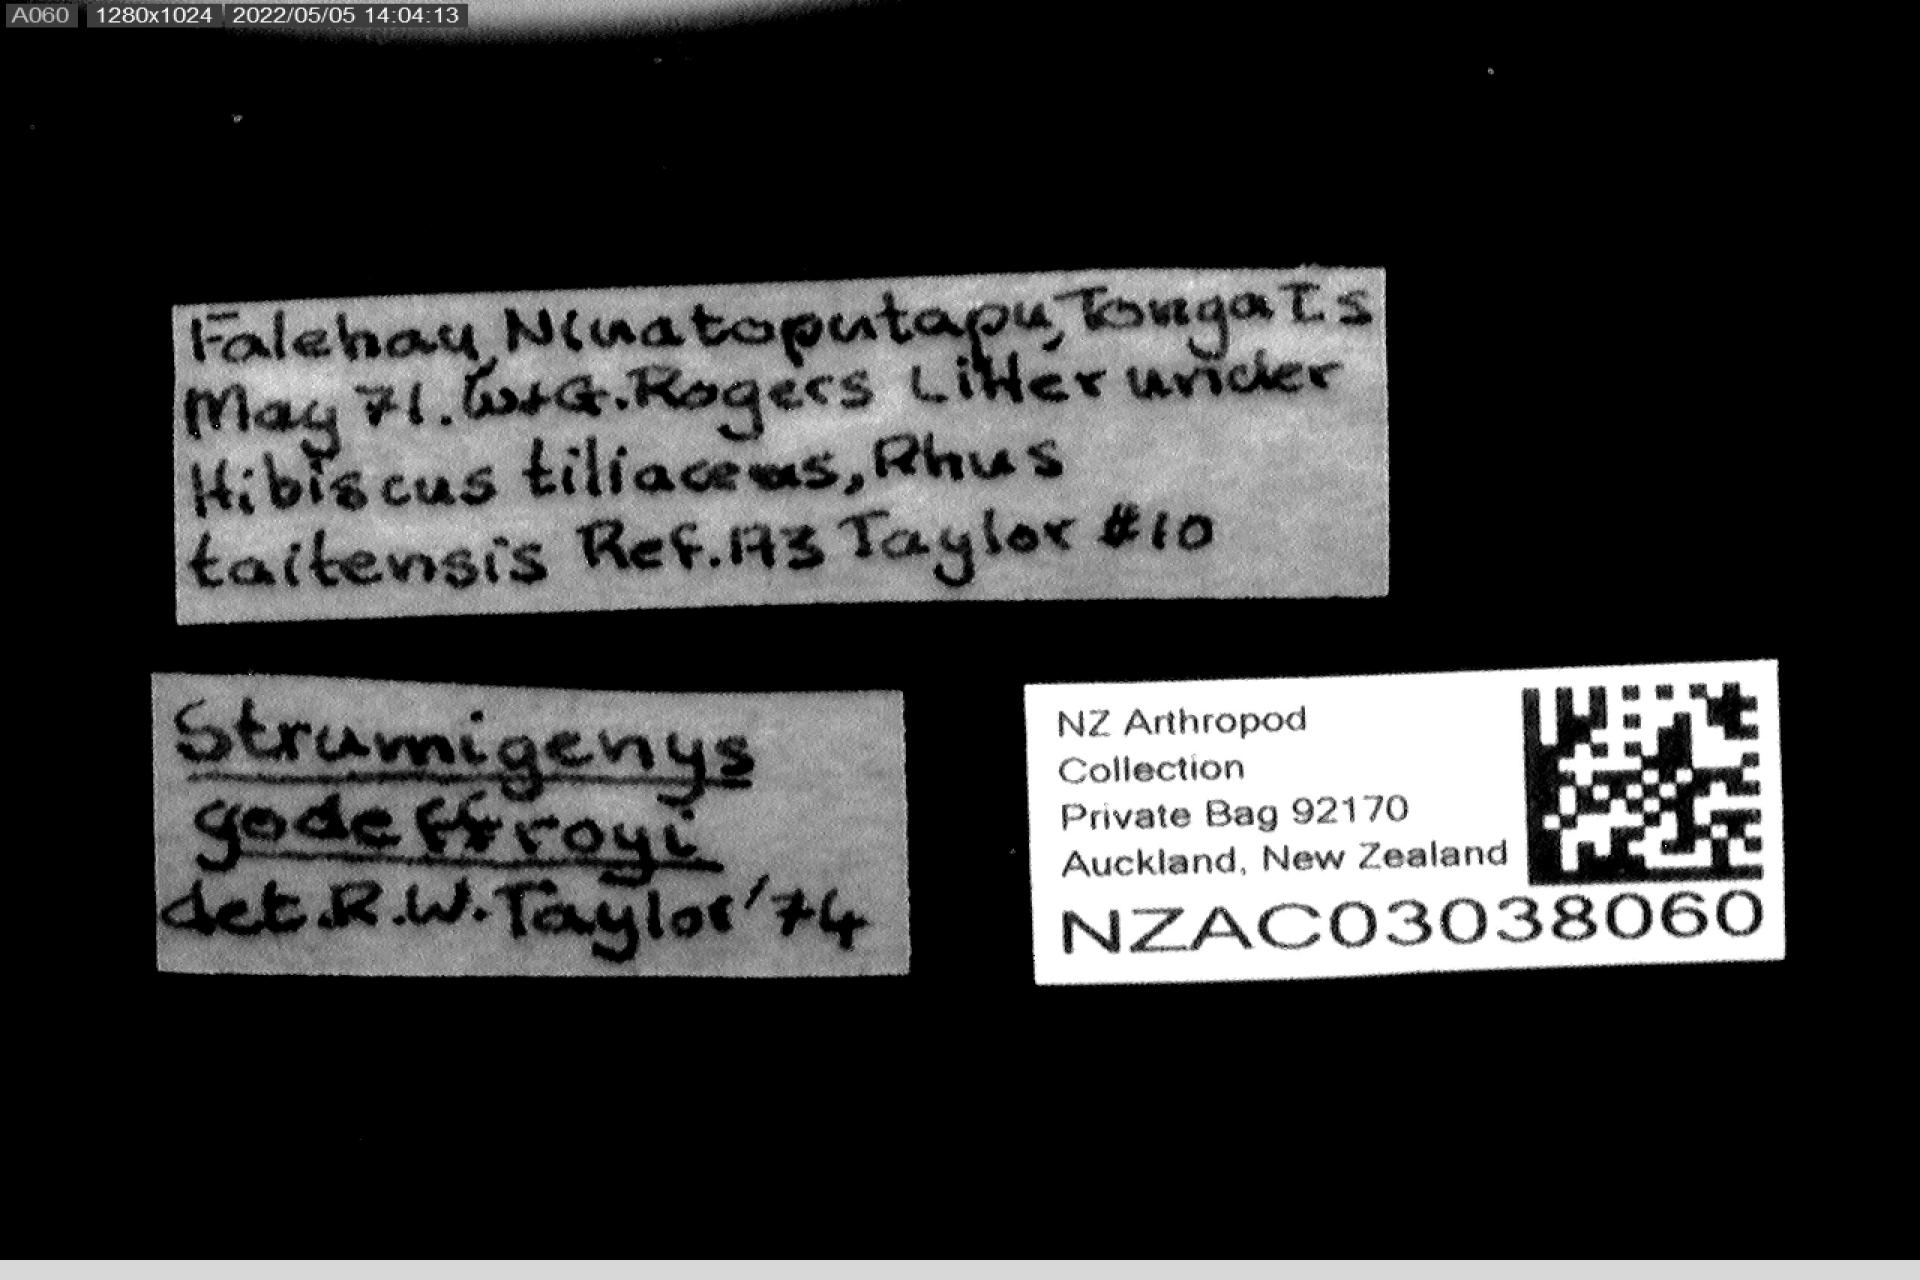 A060 1280x1024 2022/05/05 14:04:13
Falehau, Niuatoputapu, Tonga Is
May 71. W+G. Rogers Litter under
Hibiscus tiliaceus, Rhus
taitensis Ref. A3 Taylor #10
Strumigenys
godeffroyi
det. R.W. Taylor '74
NZ Arthropod
Collection
Private Bag 92170
Auckland, New Zealand
NZAC03038060